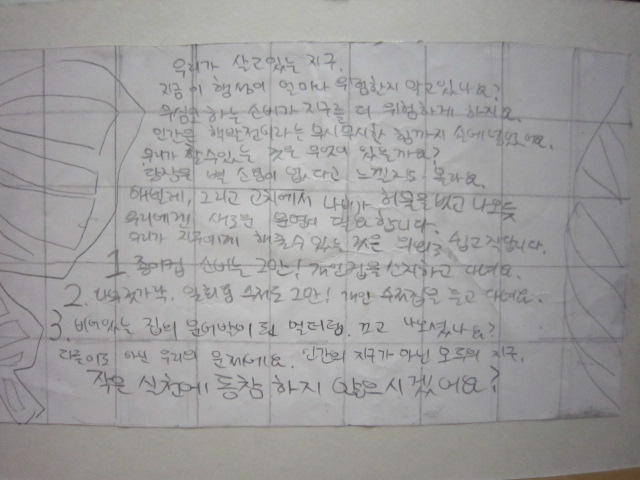 우리가 살고있는 지구.
지금 이 행성이 얼마나 위험한지 알고있나요?
무심코 하는 소비가 지구를 더 위험하게 하지요.
인간은 핵만전이라는 무시무시한 힘까지 손에 넣었어요.
우리가 할수있는 것은 무엇이 있을까요?
당장은 별 소용이 없다고 느낄지도 몰라요.
애벌레, 그리고 고치에서 나비가 허물을 벗고 나오듯
우리에겐 새로운 문명이 필요합니다.
우리가 지구에게 해줄수 있는 것은 의외로 쉽고 작답니다.
1. 종이컵 소비는 그만! 개인컵을 소지하고 다녀요.
2. 나무젓가락, 일회용 수저도 그만! 개인 수저집을 들고 다녀요.
3. 비어있는 집의 문어발이 된 멀티탭. 끄고 나오셨나요?
다름아닌 우리의 문제에요. 인간의 지구가 아닌 모두의 지구.
작은 실천에 동참 하지 않으시겠어요?